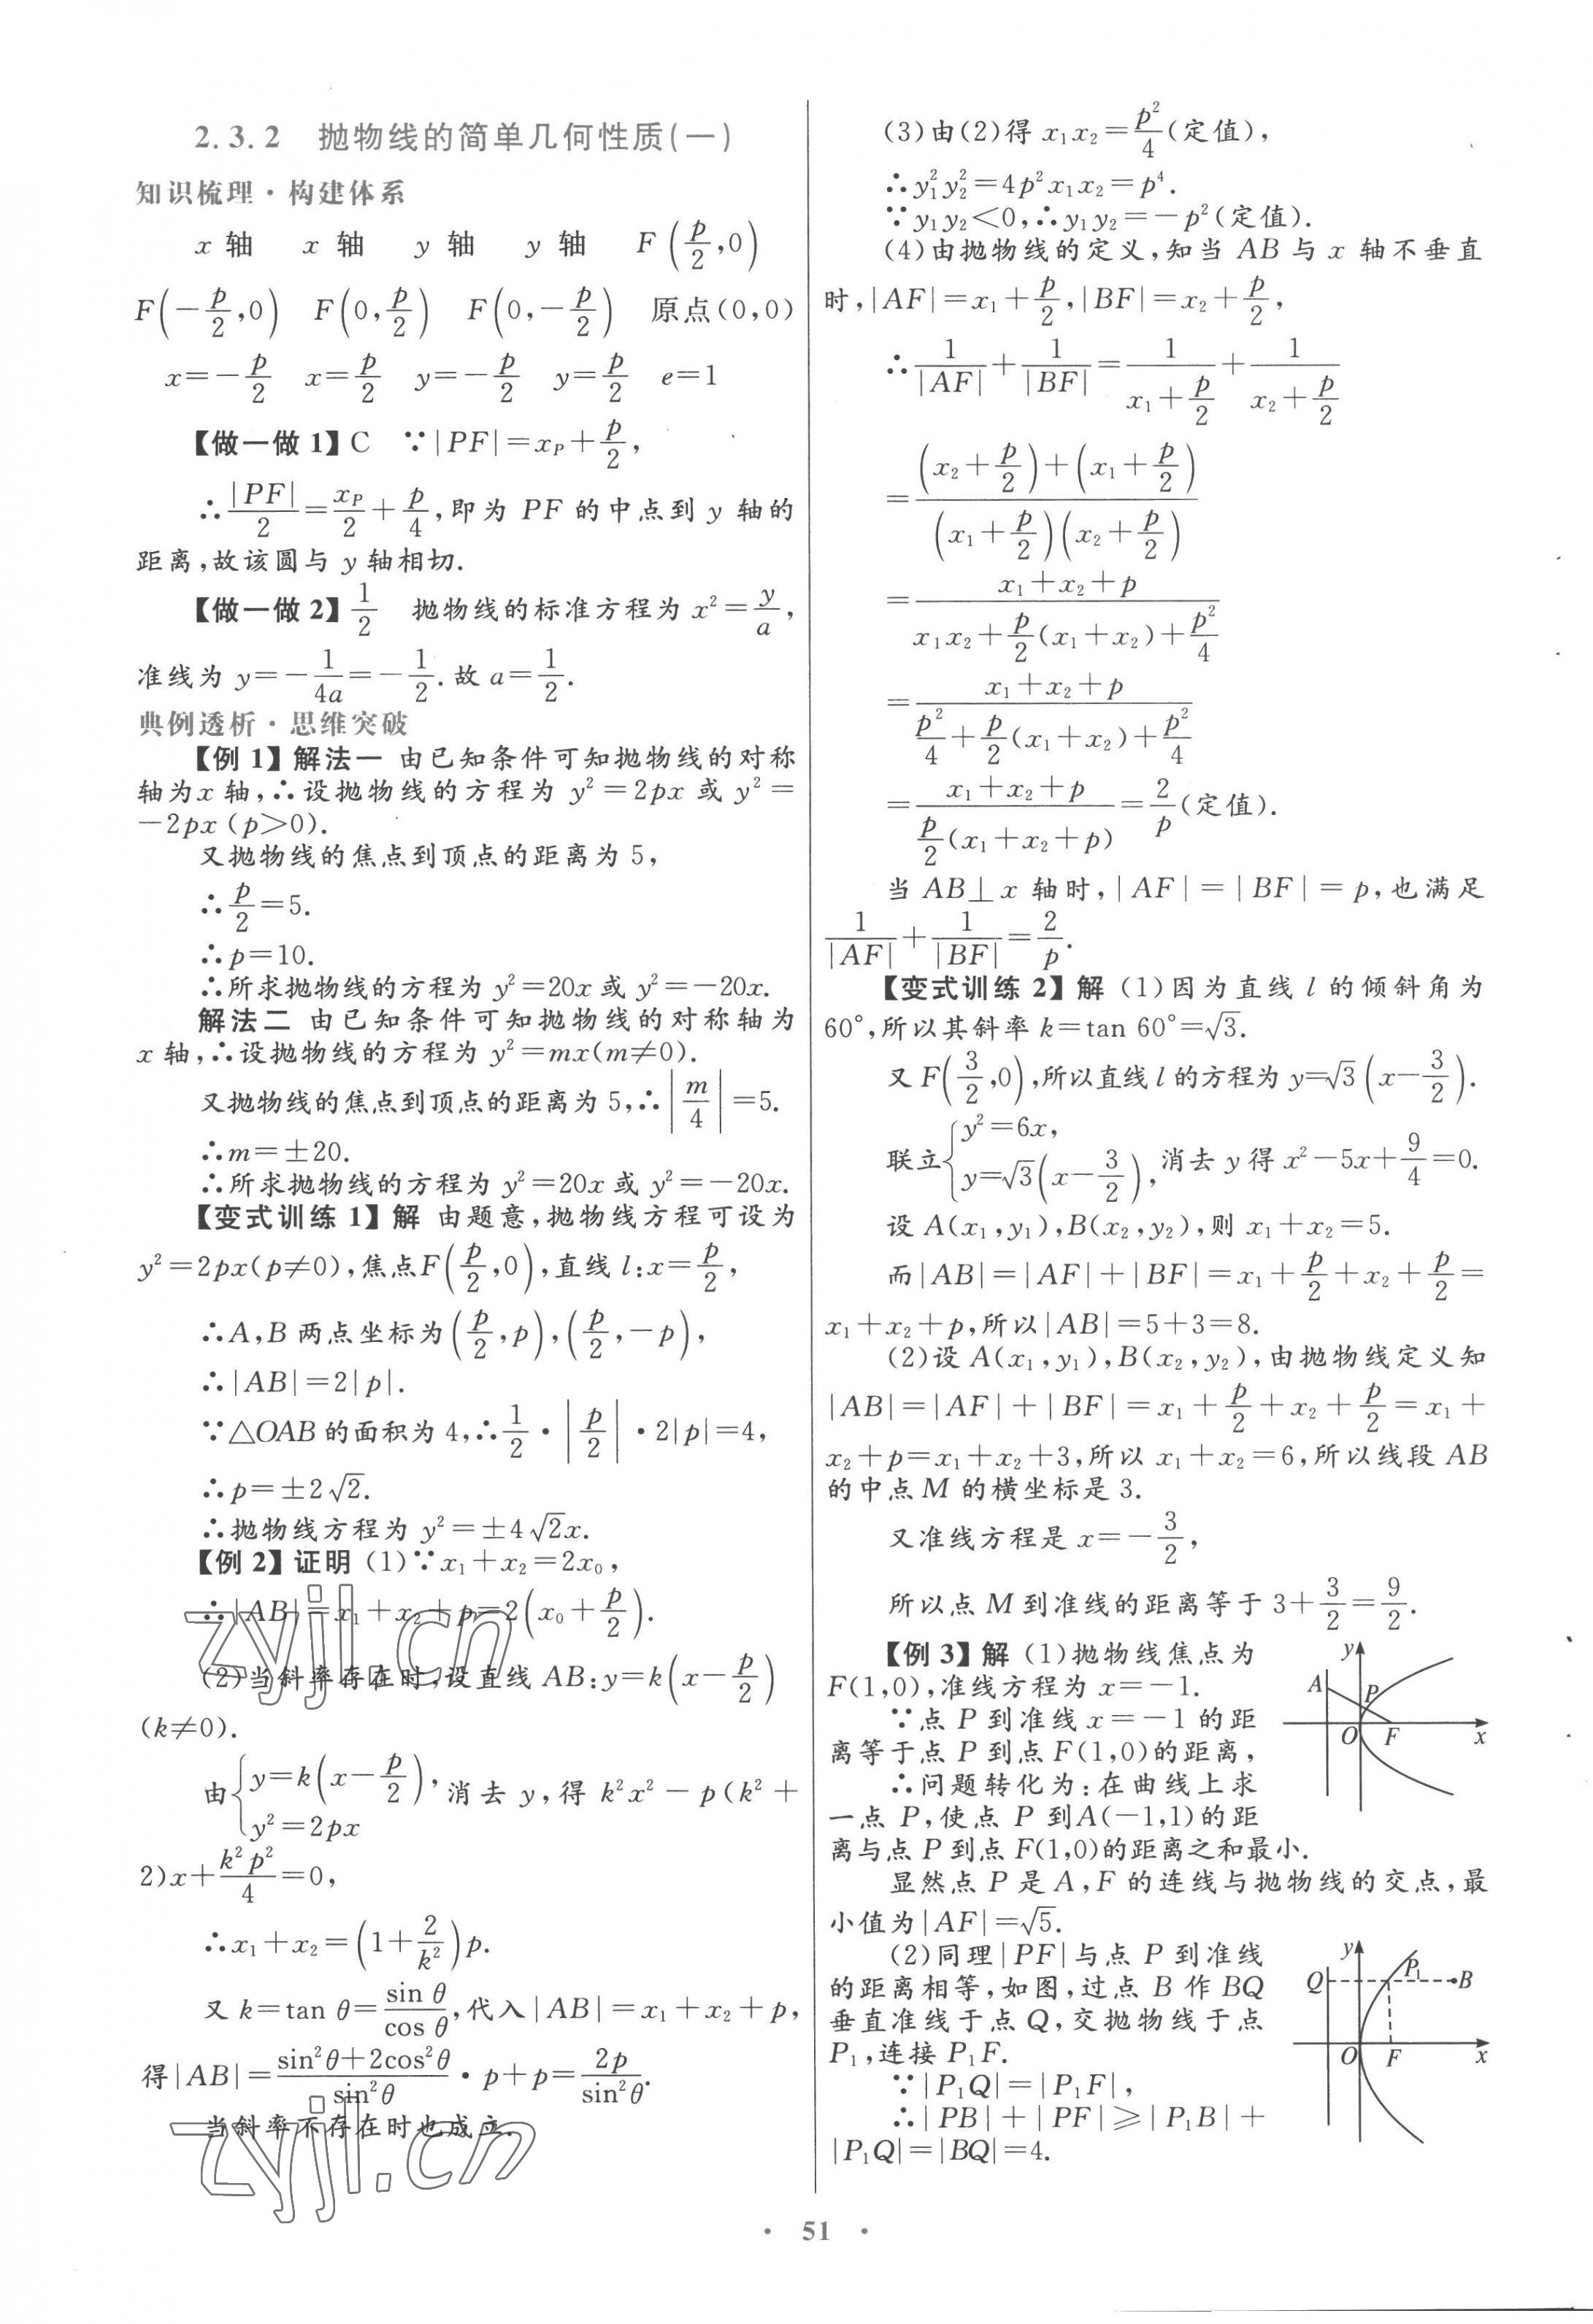 2.3.2 抛物线的简单几何性质(一)
知识梳理·构建体系
x 轴 x 轴 y 轴 y 轴 F(p/2,0)
F(-p/2,0) F(0,p/2) F(0,-p/2) 原点(0,0)
x=-p/2 x=p/2 y=-p/2 y=p/2 e=1
【做一做 1】C ∵|PF|=x_P+p/2,
∴|PF|/2=x_P/2+p/4,即为 PF 的中点到 y 轴的
距离,故该圆与 y 轴相切.
【做一做 2】1/2 抛物线的标准方程为 x²=y/a,
准线为 y=-1/(4a)=-1/2.故 a=1/2.
典例透析·思维突破
【例 1】解法一 由已知条件可知抛物线的对称
轴为 x 轴,∴设抛物线的方程为 y²=2px 或 y²=
-2px (p>0).
又抛物线的焦点到顶点的距离为 5,
∴p/2=5.
∴p=10.
∴所求抛物线的方程为 y²=20x 或 y²=-20x.
解法二 由已知条件可知抛物线的对称轴为
x 轴,∴设抛物线的方程为 y²=mx(m≠0).
又抛物线的焦点到顶点的距离为 5,∴|m/4|=5.
∴m=±20.
∴所求抛物线的方程为 y²=20x 或 y²=-20x.
【变式训练 1】解 由题意,抛物线方程可设为
y²=2px(p≠0),焦点F(p/2,0),直线 l:x=p/2,
∴A,B 两点坐标为(p/2,p),(p/2,-p),
∴|AB|=2|p|.
∵△OAB 的面积为 4,∴1/2·|p/2|·2|p|=4,
∴p=±2√2.
∴抛物线方程为 y²=±4√2x.
【例 2】证明 (1)∵x₁+x₂=2x₀,
∴|AB|=x₁+x₂+p=2(x₀+p/2).
(2)当斜率存在时,设直线 AB:y=k(x-p/2)
(k≠0).
由{y=k(x-p/2), y²=2px 消去 y,得 k²x²-p(k²+
2)x+k²p²/4=0,
∴x₁+x₂=(1+2/k²)p.
又 k=tan θ=sin θ/cos θ,代入|AB|=x₁+x₂+p,
得|AB|=(sin²θ+2cos²θ)/sin²θ·p+p=2p/sin²θ.
当斜率不存在时也成立.
zyjl.cn
zyjl.cn
(3)由(2)得 x₁x₂=p²/4(定值),
∴y₁²y₂²=4p²x₁x₂=p⁴.
∵y₁y₂<0,∴y₁y₂=-p²(定值).
(4)由抛物线的定义,知当 AB 与 x 轴不垂直
时,|AF|=x₁+p/2,|BF|=x₂+p/2,
∴1/|AF|+1/|BF|=1/(x₁+p/2)+1/(x₂+p/2)
=((x₂+p/2)+(x₁+p/2))/((x₁+p/2)(x₂+p/2))
=(x₁+x₂+p)/(x₁x₂+p/2(x₁+x₂)+p²/4)
=(x₁+x₂+p)/(p²/4+p/2(x₁+x₂)+p²/4)
=(x₁+x₂+p)/(p/2(x₁+x₂+p))=2/p(定值).
当 AB⊥x 轴时,|AF|=|BF|=p,也满足
1/|AF|+1/|BF|=2/p.
【变式训练 2】解 (1)因为直线 l 的倾斜角为
60°,所以其斜率 k=tan 60°=√3.
又 F(3/2,0),所以直线 l 的方程为 y=√3(x-3/2).
联立{y²=6x, y=√3(x-3/2), 消去 y 得 x²-5x+9/4=0.
设 A(x₁,y₁),B(x₂,y₂),则 x₁+x₂=5.
而|AB|=|AF|+|BF|=x₁+p/2+x₂+p/2=
x₁+x₂+p,所以|AB|=5+3=8.
(2)设 A(x₁,y₁),B(x₂,y₂),由抛物线定义知
|AB|=|AF|+|BF|=x₁+p/2+x₂+p/2=x₁+
x₂+p=x₁+x₂+3,所以 x₁+x₂=6,所以线段 AB
的中点 M 的横坐标是 3.
又准线方程是 x=-3/2,
所以点 M 到准线的距离等于 3+3/2=9/2.
【例 3】解 (1)抛物线焦点为
F(1,0),准线方程为 x=-1.
∵点 P 到准线 x=-1 的距
离等于点 P 到点 F(1,0)的距离,
∴问题转化为:在曲线上求
一点 P,使点 P 到A(-1,1)的距
离与点 P 到点 F(1,0)的距离之和最小.
y A P O F x
显然点 P 是 A,F 的连线与抛物线的交点,最
小值为|AF|=√5.
(2)同理|PF|与点 P 到准线
的距离相等,如图,过点 B 作 BQ
垂直准线于点 Q,交抛物线于点
P₁,连接 P₁F.
∵|P₁Q|=|P₁F|,
∴|PB|+|PF|≥|P₁B|+
|P₁Q|=|BQ|=4.
y Q P₁ B O F x
· 51 ·